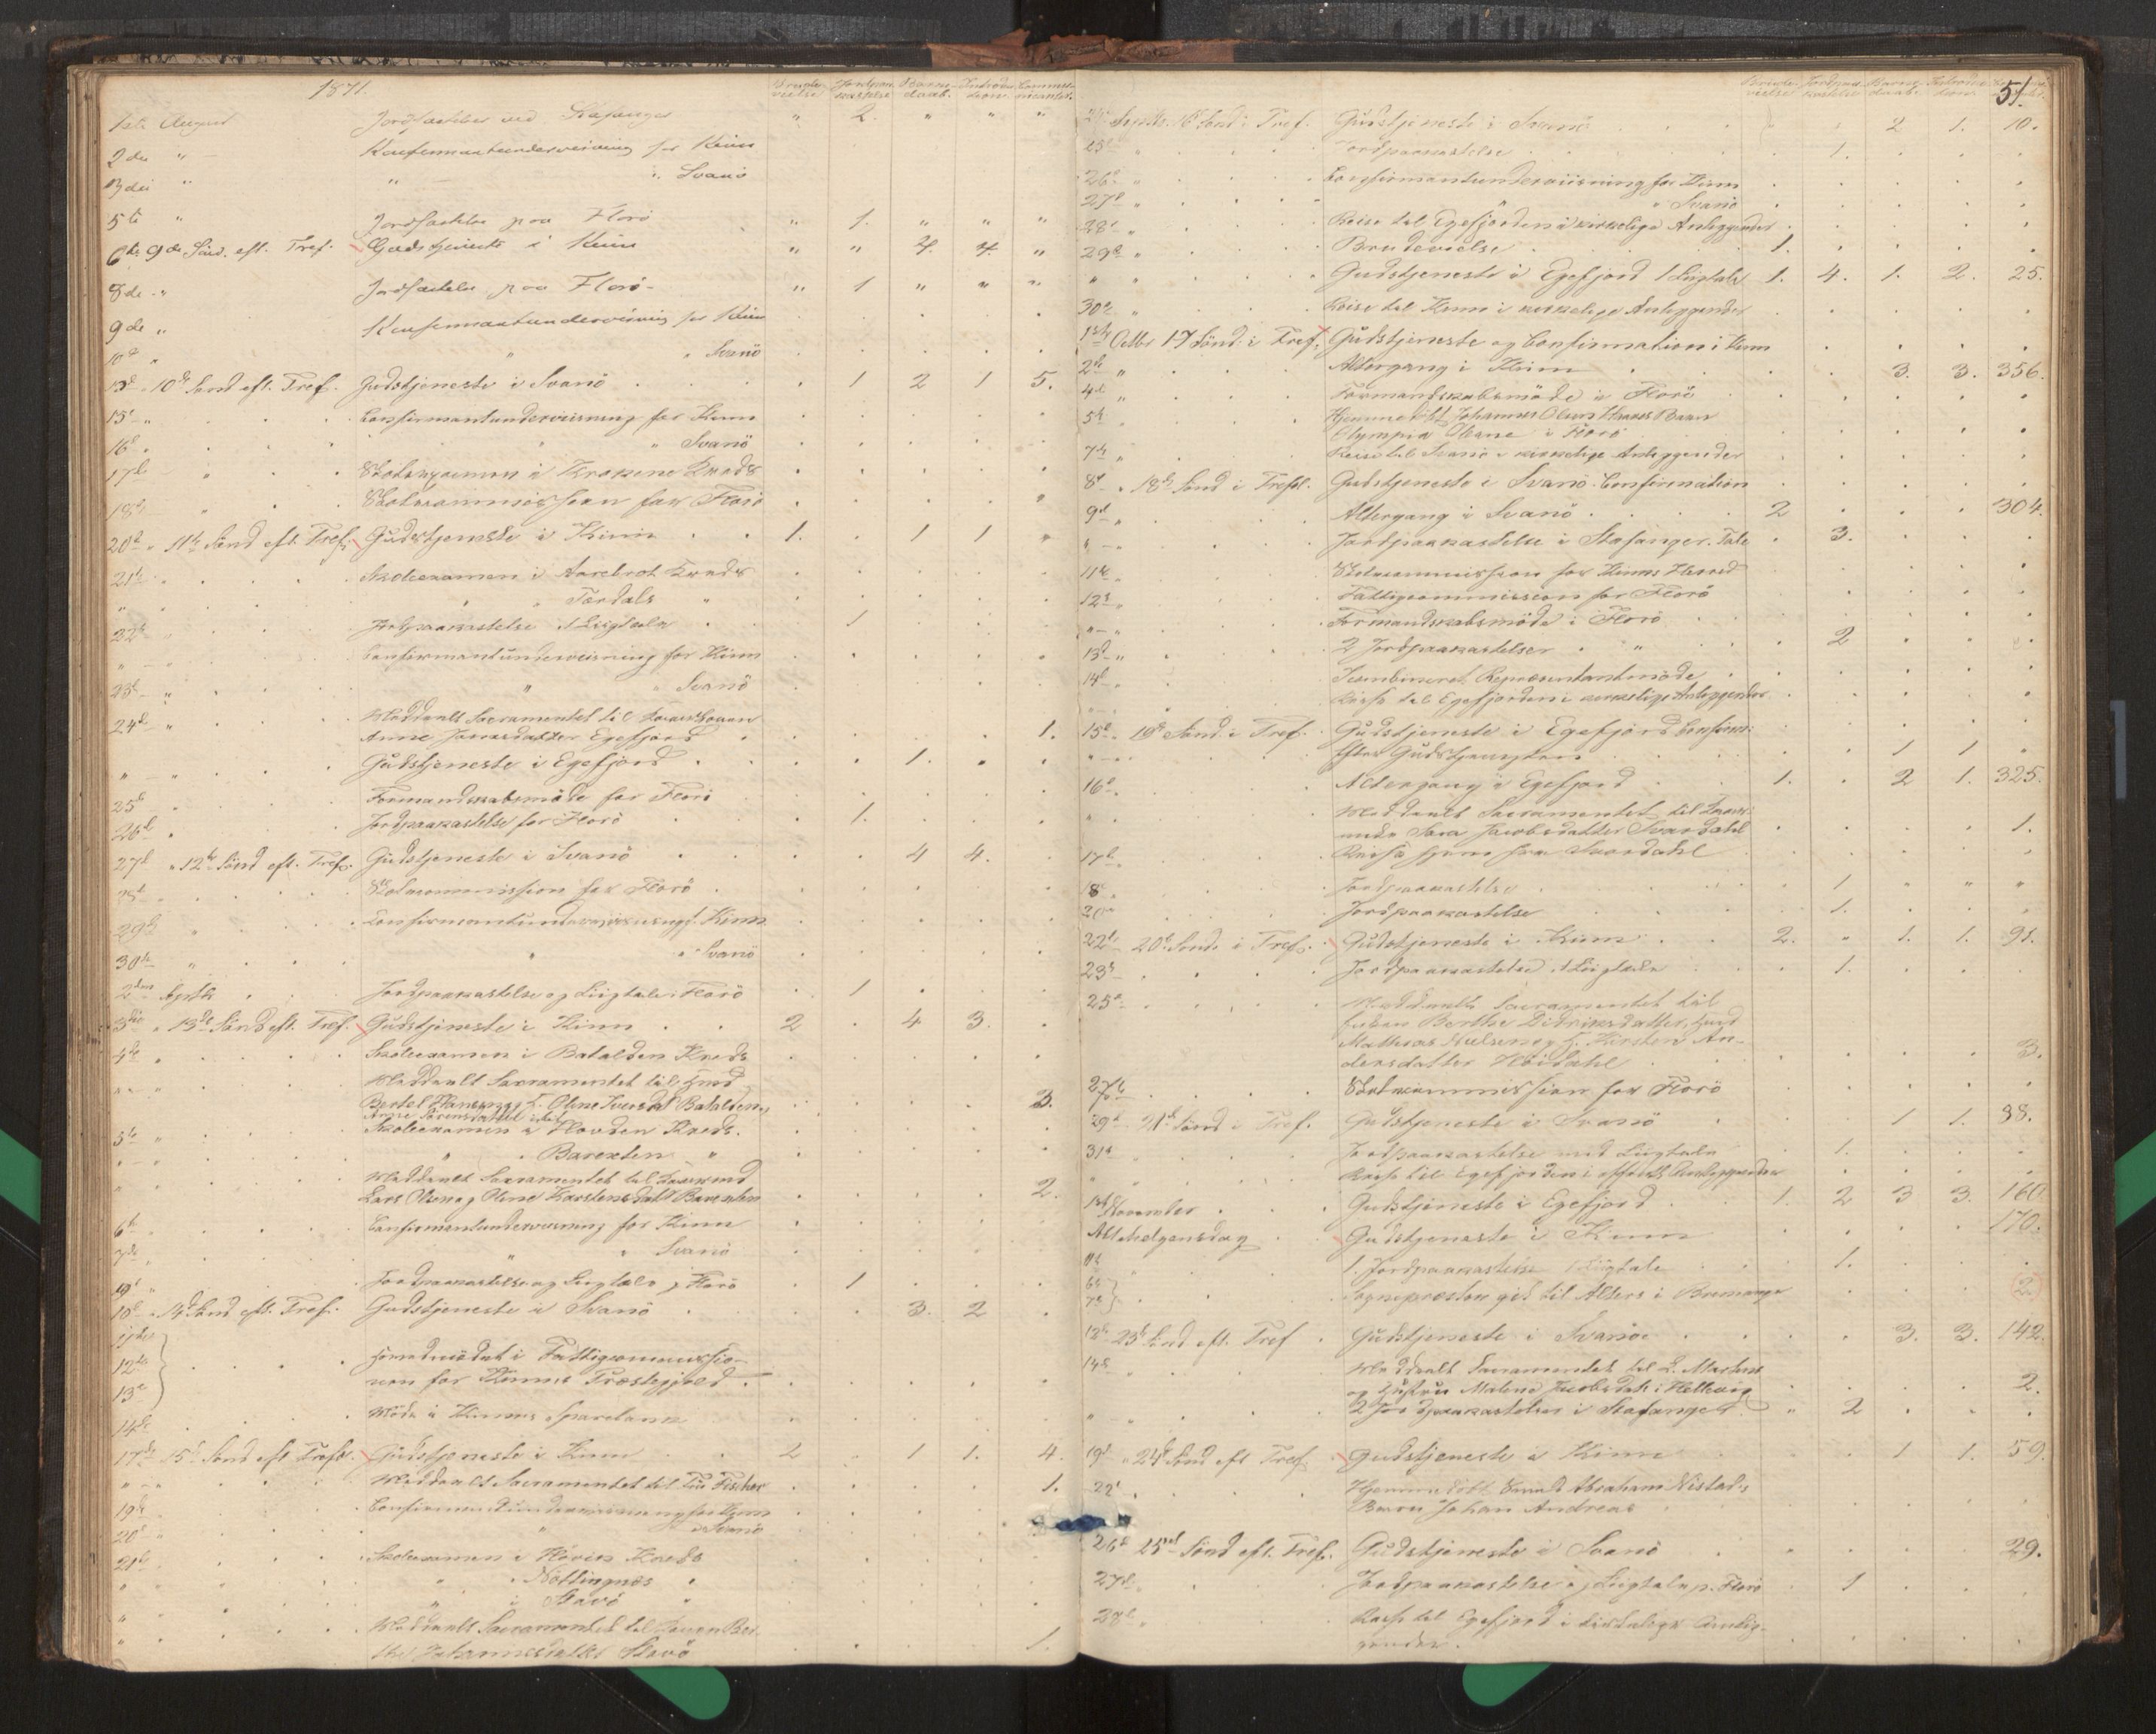 1871.
Brude- vielse Jordpaa- kastelse Barne- daab. Introduc- tion. Commu- nicanter.
1ste August Jordfæstelse ved Stafanger " 2. " " "
2den " Konfirmantunderviisning for Kinn
3die " " " Svanö
5te " Jordfæstelse paa Florö " 1. " " "
6te 9de Sönd. eft. Tref. Gudstjeneste i Kinn " " 4. 4. "
8de " Jordfæstelse paa Florö " 1 " " "
9de " Konfirmantunderviisning for Kinn
10de " " Svanö
13de 10de Sönd eft. Tref. Gudstjeneste i Svanö 1 2 1 5.
15de " Confirmantunderviisning for Kinn
16de " " Svanö
17de " Skoleexamen i Krokene Kreds
18de " Skolecommission for Florö
20de " 11te Sönd eft. Tref. Gudstjeneste i Kinn 1. 1 1
21de " Skoleexamen i Aarebrot Kreds
" " " Tordals "
22de " Jordpaakastelse 1 Liigtale 1
" " Confirmantunderviisning for Kinn
23de " " Svanö
24de " Meddeelt Sacramentet til
Anne Egefjord 1.
" " Gudstjeneste i Egefjord 1.
25de Formandskabsmöde for Florö
26de Jordpaakastelse for Florö 1.
27de " 12te Sönd eft. Tref. Gudstjeneste i Svanö 4 4.
28de Skolecommission for Florö
29de " Confirmantunderviisning f. Kinn
30te " " Svanö
2den Septb Jordpaakastelse og Liigtale i Florö 1
3die " 13de Sönd eft. Tref. Gudstjeneste i Kinn 2 4 3.
4de " Skoleexamen i Batalden Kreds
" " Meddeelt Sacramentet til
Bertel Hansen og Oline Iversdtr Batalden 3.
5te " Skoleexamen i Hovden Kreds.
" " " Barekten "
" Meddeelt Sacramentet til
Lars Olsen og Oline Karstensdatt Barekten 2.
6te " Confirmantunderviisning for Kinn
7de " " Svanö
9de " Jordpaakastelse og Liigtale p. Florö 1
10de 14de Sönd eft. Tref. Gudstjeneste i Svanö 3. 2
11te
12te Fattigcommissio-
13de nen for Kinns Præstegjeld
14de Möde i Kinns Sparebank
17de 15de Sönd eft Tref. Gudstjeneste i Kinn 2 1 1. 4.
" " Meddeelt Sacramentet til Fischer 1.
19de Confirmantunderviisning for Kinn
20de " " Svanö
21de Skoleexamen i Kreds
" " Nöttingnes "
" " i Stavö "
" Meddeelt Sacramentet til
Johannesdatter Stavö 1.
51.
24de Septbr. 16de Sönd i Tref. Gudstjeneste i Svanö 2 1. 10.
25de " Jordpaakastelse 1.
26de " Confirmantunderviisning for Kinn
27de " " " Svanö
28de " Reise til Egefjorden i kirkelige Anliggender
29de " Brudevielse 1.
" " Gudstjeneste i Egefjord 1 Liigtale 1. 4. 1. 2. 25.
30te " Reise til Kinn i kirkelige Anliggender
1ste Octbr 17 Sönd i Tref. Gudstjeneste og Confirmation i Kinn
2den " Altergang i Kinn 3. 3. 356.
4de " Formandskabsmöde i Florö
5te " Hjemmedöbt Johannes Olsen Barn
Olympia i Florö
7de " Reise til Svanö i kirkelige Anliggender
8de " 18de Sönd i Tref. Gudstjeneste i Svanö Confirmation
9de " Altergang i Svanö 2 304.
" Jordpaakastelse i Stafanger. Tale 3.
11te " Skolecommission for Kinns Herred
12te " Fattigcommission for Florö
" " Formandskabsmöde i Florö
13de " 2 Jordpaakastelser " 2
14de Kombineret Repræsentantmöde
Reise til Egefjorden i kirkelige Anliggender
15de " 19de Sönd. i Tref. Gudstjeneste i Egefjord Confirm:
" Efter Gudstjenesten 1 1
16de Altergang i Egefjord 1. 2 1. 325.
" Meddeelt Sacramentet til
Sara Jacobsdatter Svardahl 1.
17de Reise hjem fra Svardahl
18de Jordpaakastelse 1 " " "
20de Jordpaakastelse 1.
22de 20de Sönd i Tref. Gudstjeneste i Kinn 2. " 1. 1. 91.
23de Jordpaakastelse 1 Liigtale 1.
25de Meddeelt Sacramentet til
Berthe Didriksdatter,
Mathias Nielsen og Kirsten An-
dersdatter Höidahl 3.
27de Skolecommission for Florö
29de 21de Sönd i Tref. Gudstjeneste i Svanö 1 1. 38.
31te Jordpaakastelse med Liigtale 1.
" Reise til Egefjorden i Anliggender
1ste November Gudstjeneste i Egefjord 1. 2 3 3. 160
Allehelgensdag Gudstjeneste i Kinn 170.
1. Jordpaakastelse 1 Liigtale 1.
6te
7de Sognepræsten gik til Alters i Bremanger 2.
12te 23de Sönd eft. Tref Gudstjeneste i Svanöe 3. 3. 142.
14de Meddeelt Sacramentet til
og Malene Jacobsdatt i Hellevig 2.
" " 2 Jordpaakastelser i Stafanger " 2
19de " 24de Sönd eft Tref. Gudstjeneste i Kinn 1 1. 59.
22de Hjemmedöbt Abraham Nistads
Barn Johan Andreas
26de 25de Sönd eft. Tref. Gudstjeneste i Svanö 29.
27de " Jordpaakastelse og Liigtale p. Florö 1
28de " Reise til Egefjord i Anlig-
gender.